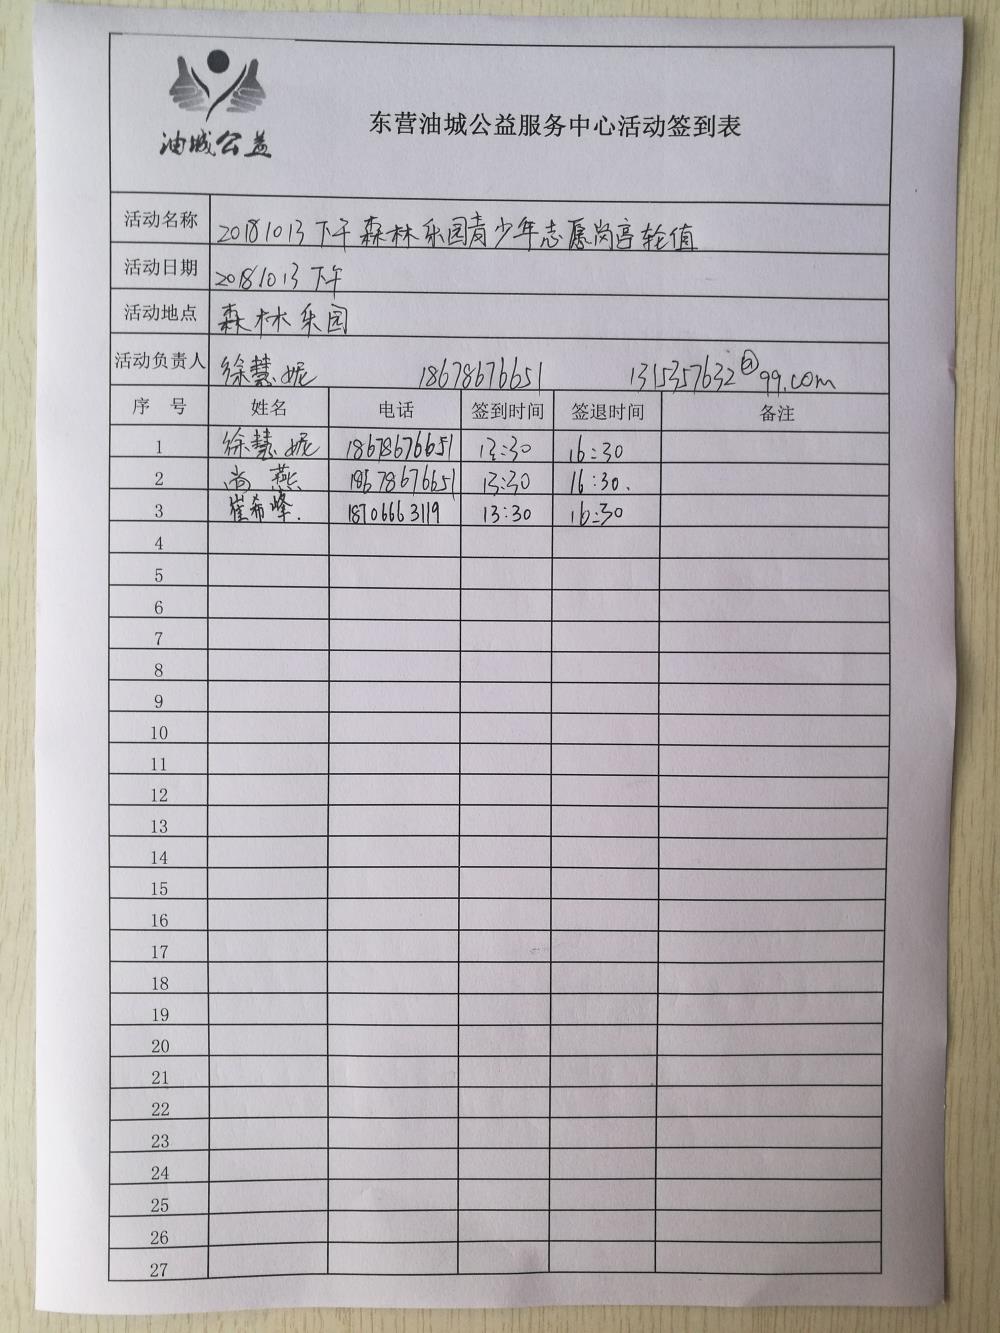 油城公益
东营油城公益服务中心活动签到表
活动名称 20181013下午森林乐园青少年志愿岗亭轮值
活动日期 20181013下午
活动地点 森林乐园
活动负责人 徐慧妮 18678676651 1315357632@qq.com
序 号 姓名 电话 签到时间 签退时间 备注
1 徐慧妮 18678676651 13:30 16:30
2 尚燕 18678676651 13:30 16:30.
3 崔希峰. 18706663119 13:30 16:30
4
5
6
7
8
9
10
11
12
13
14
15
16
17
18
19
20
21
22
23
24
25
26
27